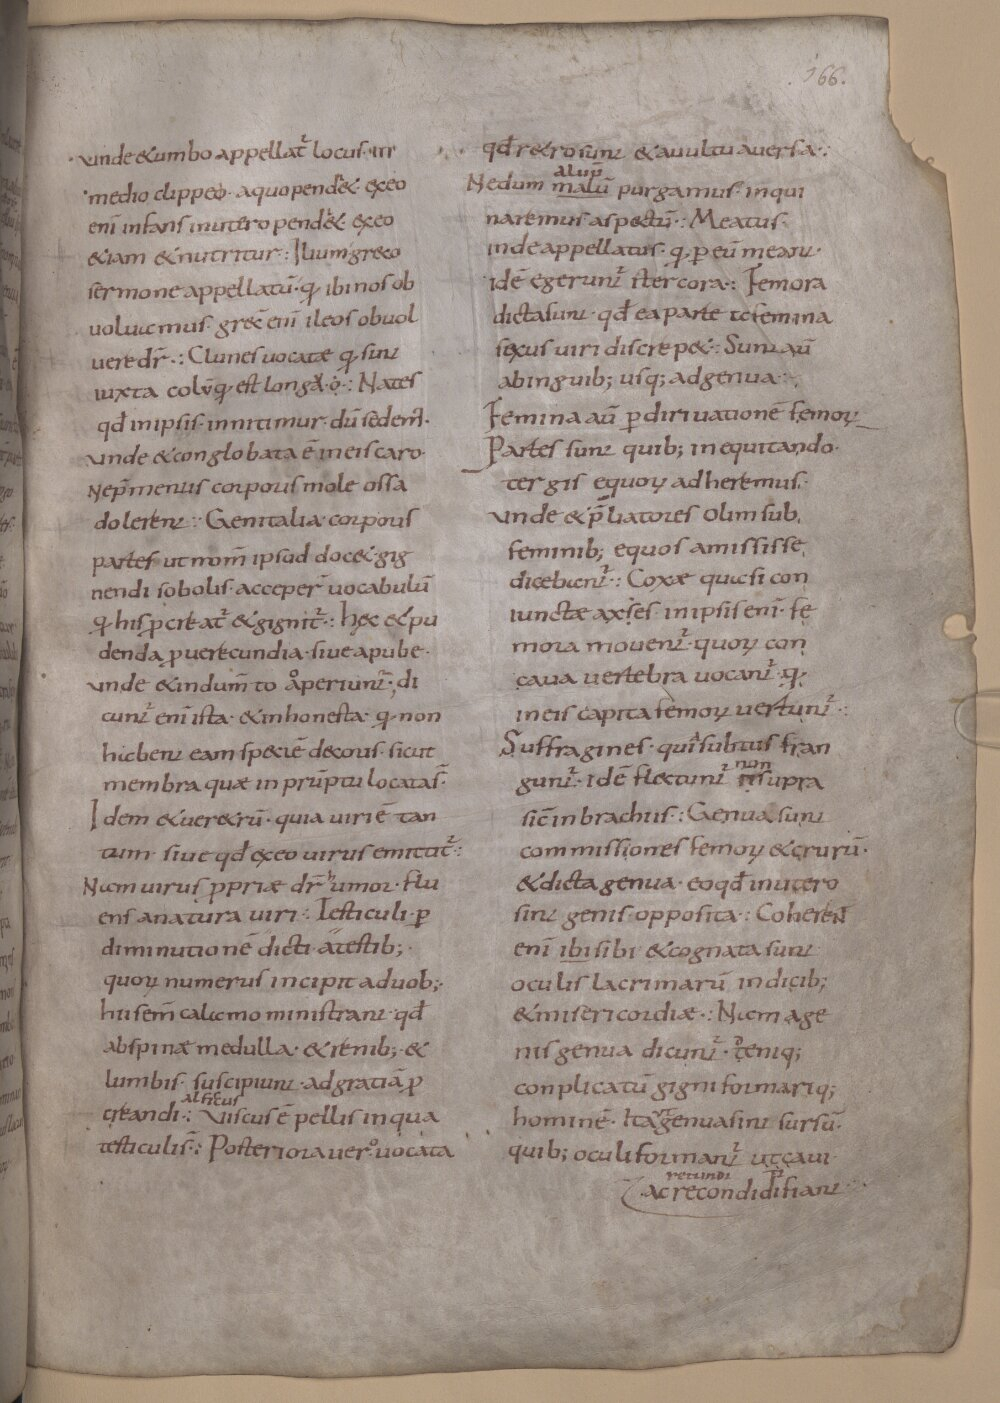 166.
unde & umbo appellat̄ locus in
medio clippeo. a quo pendet &. ex eo
eni infans in utero pendet &. ex eo
& iam & nutritur:. Ilium greco
sermone appellatū. q; ibi nos ob
uoluamus. grec̄ eni ileos obuol
uere dr̄.:. Clunes uocatæ q; sunt
iuxta colū q; est longā. o.:. Nates
qđ in ipsis innitimur. dū sedem̄.
unde & conglobata ē in eis caro.
ne p̄mentis corporis mole ossa
dolerent:. Genitalia corporis
partes ut nom̄ ipsud doc& gig
nendi sobolis acceper̄ uocabulū
q; his pcreat̄ & gignit̄.:. hec & pu
denda p uerecundia. siue a pube.
unde & indum̄to operiunt̄. di
cunt̄ eni ista & inhonesta. q; non
habent eam speciē decoris. sicut
membra quæ in prūptu locatas̄.
Idem & ueretrū. quia uiri ē tan
tum. siue qđ ex eo uirus emittit̄:.
Nam uirus propriæ dr̄ humor flu
ens a natura uiri:. Testiculi. p
diminutionē dicti. a testib;.
quorum numerus incipit a duob;.
hi sem̄ calamo ministrant. qđ
ab spinæ medulla. & renib;. &
lumbis suscipiunt. ad gratiā p
al ficus
creandi:. Viscus ē pellis in qua
testiculis̄:. Posteriora uero uocata
qđ retro sunt & a uultu auersa.:.
al up̄
Ne dum malū purgamus. inqui
naremus aspectū:. Meatus.
inde appellatus. q; p eū meant.
idē egerunt̄ stercora.:. Femora
dicta sunt. qđ ea parte tc femina
sexus uiri discrep&.:. Sunt aū
ab inguib; usq; ad genua.:.
Femina aū p diriuationē femorum
Partes sunt quib; in equitando.
tergis equorum adheremus.
Vnde & p̄liatores olim sub
feminib; equos amississe
dicebant̄.:. Coxæ quasi con
iunctæ axses. in ipsis eni. fe
mora mouent̄. quorum con
caua uertebra uocant̄. q;
in eis capita femorum uertunt̄.:.
Suffragines. qui subtus fran
non
gunt̄. idē flectunt̄ n supra
sic̄ in brachiis.:. Genua sunt
commissiones femorum & crurū.
& dicta genua. eo qđ in utero
sint genis opposita.:. Coheren̄
eni ibi sibi & cognata sunt
oculis lacrimarū indicib;
& misericordiæ.:. Nam a ge
nis genua dicunt̄. Deniq;
conplicatū gigni formariq;
hominē. Ita ut genua sint sursū.
quib; oculi formant̄ ut caui
retundi
ac reconditi fiant